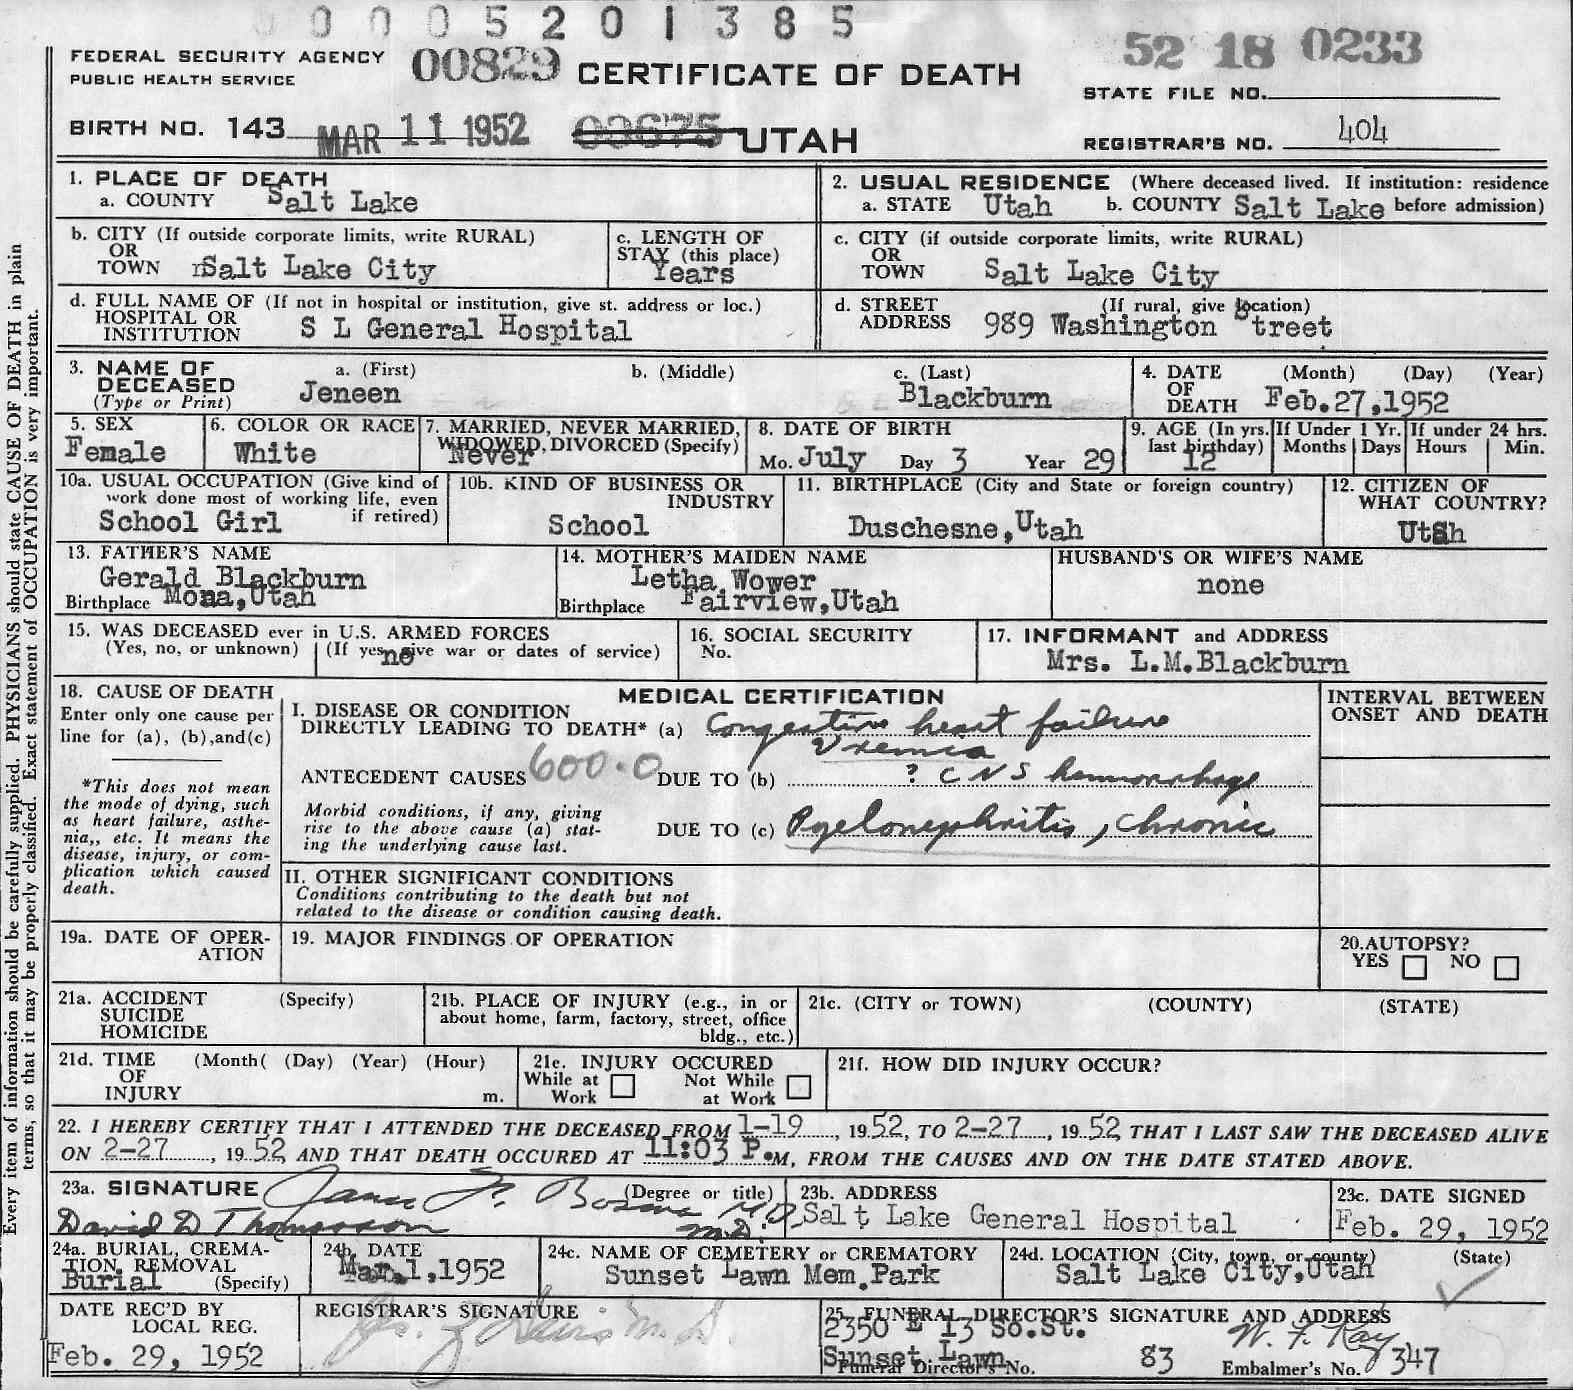 0005201385
FEDERAL SECURITY AGENCY
PUBLIC HEALTH SERVICE
00829 CERTIFICATE OF DEATH
52 18 0233
STATE FILE NO.
BIRTH NO. 143 MAR 11 1952 03675 UTAH
REGISTRAR'S NO. 404
Every item of information should be carefully supplied. PHYSICIANS should state CAUSE OF DEATH in plain
terms, so that it may be properly classified. Exact statement of OCCUPATION is very important.
1. PLACE OF DEATH
a. COUNTY Salt Lake
2. USUAL RESIDENCE (Where deceased lived. If institution: residence
a. STATE Utah b. COUNTY Salt Lake before admission)
b. CITY (If outside corporate limits, write RURAL)
OR
TOWN Salt Lake City
c. LENGTH OF
STAY (this place)
Years
c. CITY (if outside corporate limits, write RURAL)
OR
TOWN Salt Lake City
d. FULL NAME OF (If not in hospital or institution, give st. address or loc.)
HOSPITAL OR
INSTITUTION S L General Hospital
d. STREET (If rural, give location)
ADDRESS 989 Washington Street
3. NAME OF a. (First) b. (Middle) c. (Last)
DECEASED Jeneen Blackburn
(Type or Print)
4. DATE (Month) (Day) (Year)
OF
DEATH Feb.27,1952
5. SEX
Female
6. COLOR OR RACE
White
7. MARRIED, NEVER MARRIED,
WIDOWED, DIVORCED (Specify)
Never
8. DATE OF BIRTH
Mo. July Day 3 Year 29
9. AGE (In yrs.
last birthday)
12
If Under 1 Yr.
Months Days
If under 24 hrs.
Hours Min.
10a. USUAL OCCUPATION (Give kind of
work done most of working life, even
if retired)
School Girl
10b. KIND OF BUSINESS OR
INDUSTRY
School
11. BIRTHPLACE (City and State or foreign country)
Duschesne,Utah
12. CITIZEN OF
WHAT COUNTRY?
13. FATHER'S NAME
Gerald Blackburn
Birthplace Mona,Utah
14. MOTHER'S MAIDEN NAME
Letha Wower
Birthplace Fairview,Utah
HUSBAND'S OR WIFE'S NAME
none
15. WAS DECEASED ever in U.S. ARMED FORCES
(Yes, no, or unknown) (If yes, give war or dates of service)
no
16. SOCIAL SECURITY
No.
17. INFORMANT and ADDRESS
Mrs. L.M.Blackburn
18. CAUSE OF DEATH
Enter only one cause per
line for (a), (b),and(c)
*This does not mean
the mode of dying, such
as heart failure, asthe-
nia,, etc. It means the
disease, injury, or com-
plication which caused
death.
MEDICAL CERTIFICATION
I. DISEASE OR CONDITION
DIRECTLY LEADING TO DEATH* (a) Congestive heart failure
Uremia
ANTECEDENT CAUSES 600.0 DUE TO (b) ? CNS hemorrhage
Morbid conditions, if any, giving
rise to the above cause (a) stat-
ing the underlying cause last.
DUE TO (c) Pyelonephritis, chronic
INTERVAL BETWEEN
ONSET AND DEATH
II. OTHER SIGNIFICANT CONDITIONS
Conditions contributing to the death but not
related to the disease or condition causing death.
19a. DATE OF OPER-
ATION
19. MAJOR FINDINGS OF OPERATION
20.AUTOPSY?
YES NO
21a. ACCIDENT (Specify)
SUICIDE
HOMICIDE
21b. PLACE OF INJURY (e.g., in or
about home, farm, factory, street, office
bldg., etc.)
21c. (CITY or TOWN) (COUNTY) (STATE)
21d. TIME (Month( (Day) (Year) (Hour)
OF
INJURY m.
21e. INJURY OCCURED
While at Not While
Work at Work
21f. HOW DID INJURY OCCUR?
22. I HEREBY CERTIFY THAT I ATTENDED THE DECEASED FROM 1-19, 1952, TO 2-27, 1952 THAT I LAST SAW THE DECEASED ALIVE
ON 2-27, 1952 AND THAT DEATH OCCURED AT 11:03 P.M, FROM THE CAUSES AND ON THE DATE STATED ABOVE.
23a. SIGNATURE (Degree or title) M.D.
David D Thomson M.D.
23b. ADDRESS
Salt Lake General Hospital
23c. DATE SIGNED
Feb. 29, 1952
24a. BURIAL, CREMA-
TION, REMOVAL
Burial (Specify)
24b. DATE
Mar.1,1952
24c. NAME OF CEMETERY or CREMATORY
Sunset Lawn Mem.Park
24d. LOCATION (City, town, or county) (State)
Salt Lake City,Utah
DATE REC'D BY
LOCAL REG.
Feb. 29, 1952
REGISTRAR'S SIGNATURE
25. FUNERAL DIRECTOR'S SIGNATURE AND ADDRESS
2350 E 13 So.St.
Sunset Lawn
Funeral Director's No. 83 Embalmer's No. 347